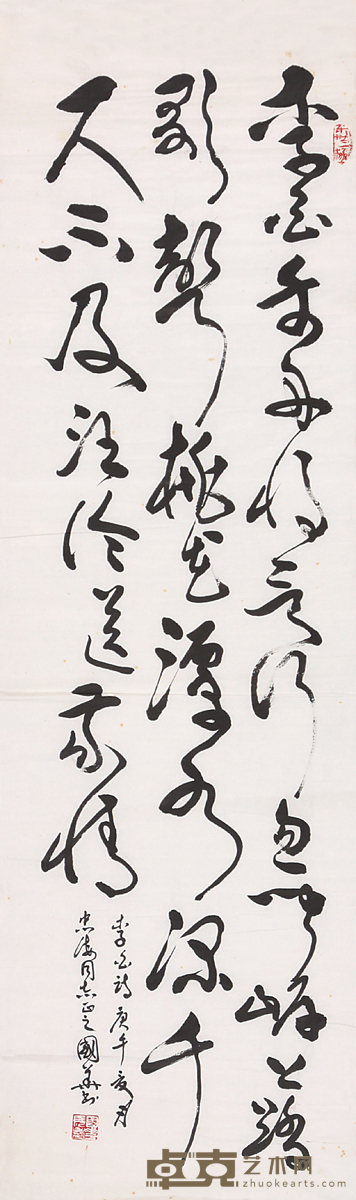 李白乘舟将行忽闻岸上踏
歌聲桃花潭水深千
尺不及汪伦送我情
李白诗 庚午夏月
忠海同志正之 國華书
卓克艺术网
www.zhuokearts.com